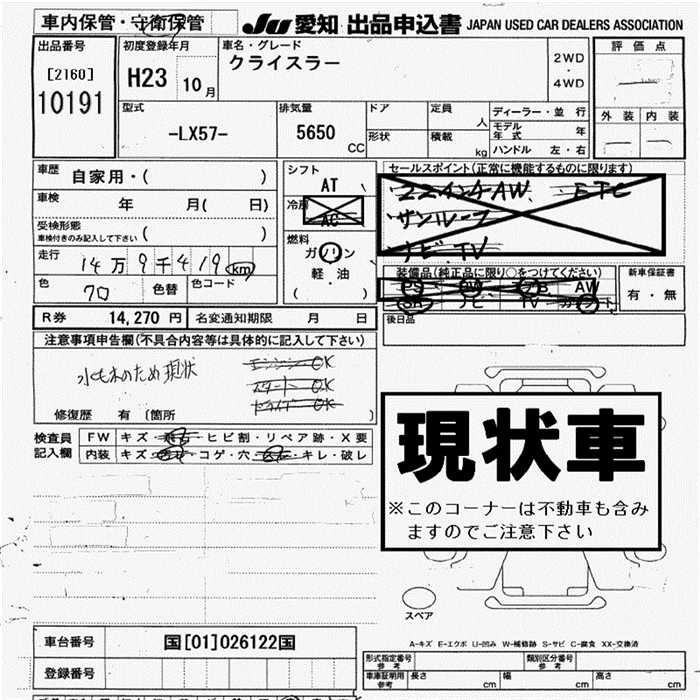 車内保管・守衛保管
JU 愛知 出品申込書 JAPAN USED CAR DEALERS ASSOCIATION
出品番号 初度登録年月 車名・グレード 評価点
[2160] H23 10月 クライスラー 2WD・4WD
10191
型式 排気量 ドア 定員 人 ディーラー・並行 外装 内装
-LX57- 5650 CC 形状 積載 kg モデル年式 年
ハンドル 左・右
車歴 自家用・( ) シフト AT セールスポイント(正常に機能するものに限ります)
車検 年 月( 日) 冷房 AC 22インチAW ETC
サンルーフ
受検形態 車検付きのみ記入して下さい ( ) 燃料 ガソリン ナビ TV
走行 14万9千419km 軽・油
( )
装備品(純正品に限り○をつけてください) 新車保証書
色 70 色替 色コード PS PW AW 有・無
SR ナビ TV
R券 14,270円 名変通知期限 月 日 後日品
注意事項申告欄(不具合内容等は具体的に記入して下さい)
水もれのため現状 エンジン OK
スタート OK
ドライブ OK
修復歴 有 〔箇所 〕
検査員記入欄 FW キズ・ ・ヒビ割・リペア跡・X要
内装 キズ・ ・コゲ・穴・ ・キレ・破レ
現状車
※このコーナーは不動車も含み
ますのでご注意下さい
スペア
A-キズ E-エクボ U-凹み W-補修跡 S-サビ C-腐食 XX-交換済
車台番号 国[01]026122国
形式指定番号 参考 類別区分番号 参考
登録番号 車庫証明用参考 長さ cm 幅 cm 高さ cm